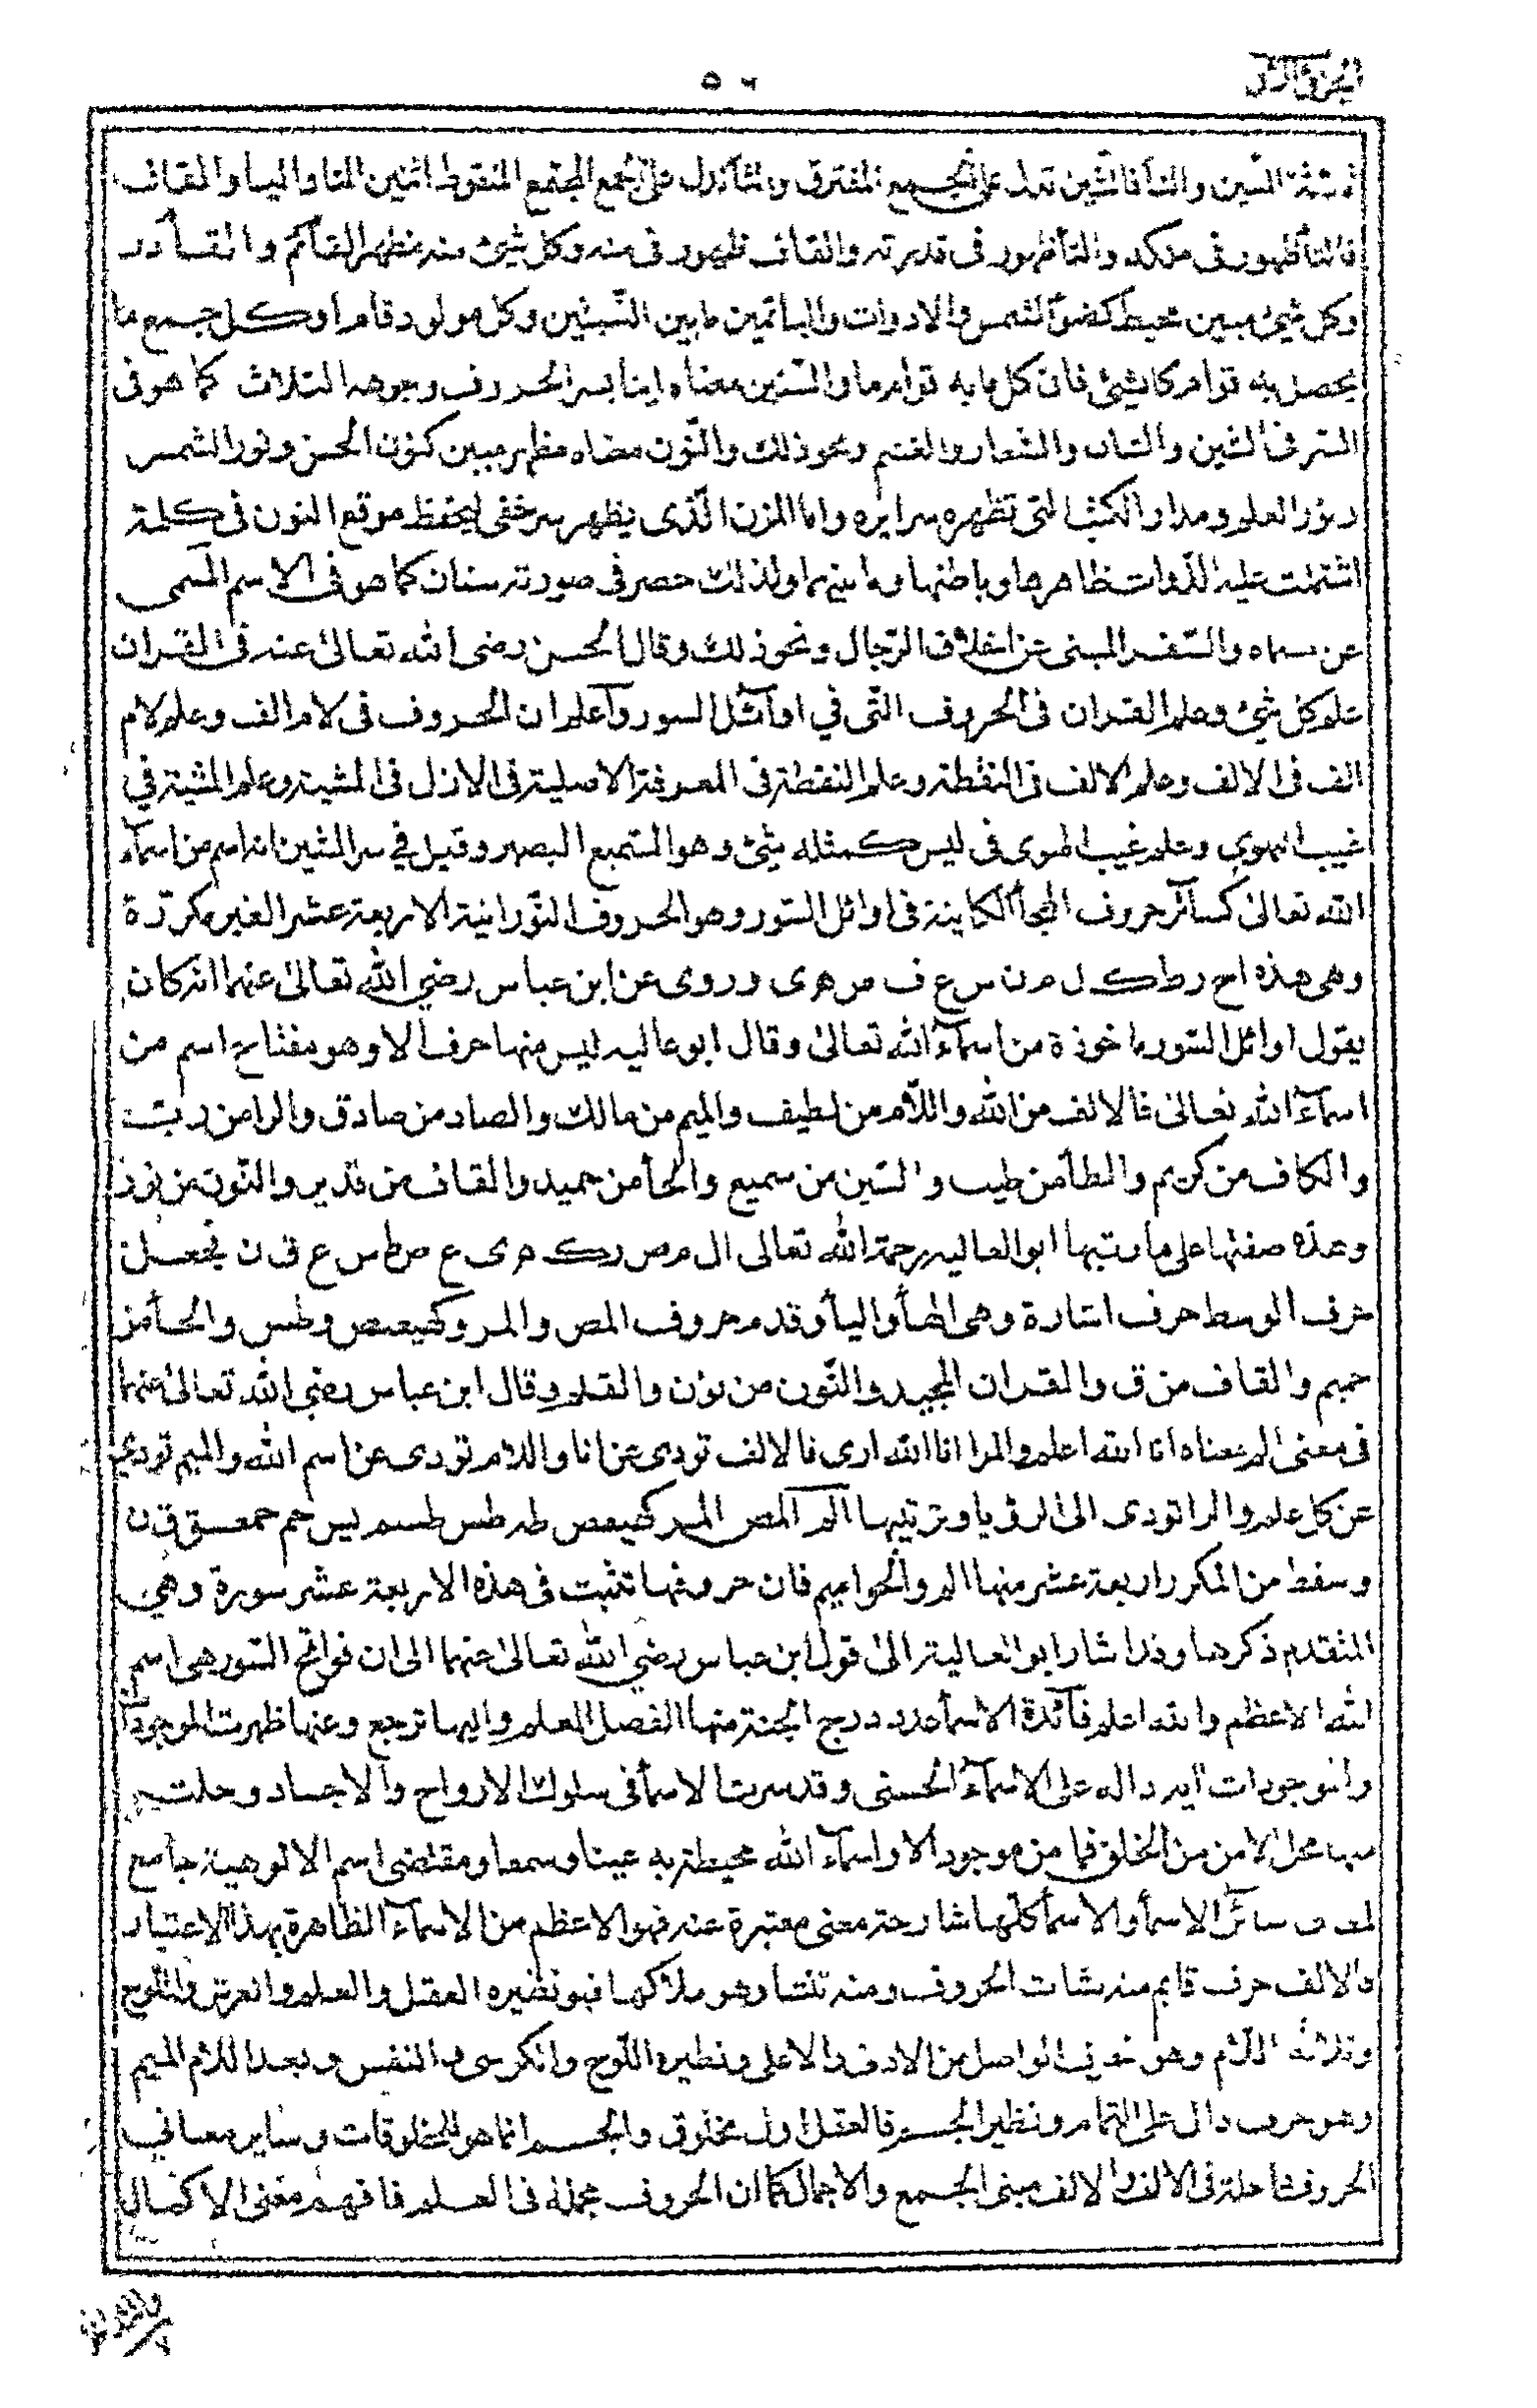 الجزء الاول
٥٦
السين والثا فالشين تدل على الجمع المفترق والثا تدل على الجمع المجتمع المنقوط اثنين التا واليا والقاف
فالتا ظهور فى ملكه والتا ظهور فى قدرته والقاف ظهور فى منه وكل شيئ منه مظهر القآئم والقادر
وكل شيئ مبين محيط كضوء الشمس والادوات واليا ئمين مابين الشيئين وكل مولود قام او كل جمع ما
يحصل به قوام كل شيئ فان كل مابه قوام ما والسين معناه اينا بسر الحروف وجوهه الثلاث كما هو فى
السر فى الشين والشاب والشعار والغنم ونحو ذلك والنون معناه مظهر مبين كنون الحسن ونور الشمس
ونور العلم ومداد الكتب التى تظهره سرايره واما المزن الذى يظهر سر خفى ليحفظ موقع النون فى كلمة
اشتملت عليه الذوات ظاهرها وباطنها وما بينهما ولذلك حصر فى صورته سنان كما هو فى الاسم المسمى
عن مسماه والسفر المبنى عن اخلاق الرجال ونحو ذلك وقال الحسن رضى الله تعالى عنه فى القران
علم كل شيئ وعلم القران فى الحروف التى في اوآئل السور وآعلم ان الحروف فى لام الف وعلم لام
الف فى الالف وعلم الالف فى النقطة وعلم النقطة فى المعرفة الاصلية فى الازل فى المشية وعلم المشية في
غيب الهوى وعلم غيب الهوى فى ليس كمثله شيئ وهو السميع البصير وقيل في سر الشين انه اسم من اسمآء
الله تعالى كسآئر حروف الهجا الكاينة فى اوائل السور وهو الحروف النورانية الاربعة عشر الغير مكررة
وهى هذه ا ح ر ط ك ل م ن س ع ف ص ه ى وروى عن ابن عباس رضي الله تعالى عنهما انه كان
يقول اوائل السور ماخوذة من اسمآء الله تعالى وقال ابو عاليه ليس منها حرف الا وهو مفتاح اسم من
اسمآء الله تعالى فالالف من الله واللام من لطيف والميم من مالك والصاد من صادق والرا من رب
والكاف من كريم والطا من طيب والسين من سميع والحا من حميد والقاف من قدير والنون من نور
وهذه صفتها على ما رتبها ابو العاليه رحمة الله تعالى ا ل م ص ر ك ه ى ع ص ط س ع ق ن فجعل
حرف الوسط حرف اشارة وهى الها واليا وقدم حروف المص والمر وكهيعص وطس والحا من
حميم والقاف من ق والقران المجيد والنون من نون والقلم وقال ابن عباس رضي الله تعالى عنهما
فى معنى الم معناه انا الله اعلم والمرا انا الله ارى فالالف تودى عن انا واللام تودى عن اسم الله والميم تودى
عن كل علم والرا تودى الى الرؤيا وترتيبها الم المص المر كهيعص طه طس طسم يس حم حمعسق ق ن
وسقط من المكرر اربعة عشر منها الم والحواميم فان حروفها تثبت فى هذه الاربعة عشر سورة وهي
المتقدم ذكرها وقد اشار ابو العالية الى قول ابن عباس رضي الله تعالى عنهما الى ان فواتح السور هى اسم
الله الاعظم والله اعلم فآئدة الاسما عدد درج الجنة منها الفصل العلم واليها ترجع وعنها ظهرت الموجودات
والموجودات آيه داله على الاسمآء الحسنى وقد سرت الاسما فى سلوك الارواح والاجساد وحلت
محل الامن من الخلق فما من موجود الا واسمآء الله محيطة به عينا وسمعا ومقتضى اسم الالوهية جامع
سآئر الاسما والاسما كلها شارحة معنى معتبرة عنه فهو الاعظم من الاسمآء الظاهرة بهذا الاعتبار
فالالف حرف قايم منه نشات الحروف ومنه تنشا وهو ملاكها فهو نضيره العقل والعلم والعرش واللوح
وثلاثه اللام وهو الواصل من الادنى الاعلى ونظيره اللوح والكرسى والنفس وبعد اللام الميم
وهو حرف دال على التمام ونظير الجسم فالعقل اول مخلوق والجسم انما هو للمخلوقات وساير معانى
الحروف داخلة فى الالف والالف مبنى الجمع والاجمال كما ان الحروف مجملة فى العلم فافهم معنى الاكمال